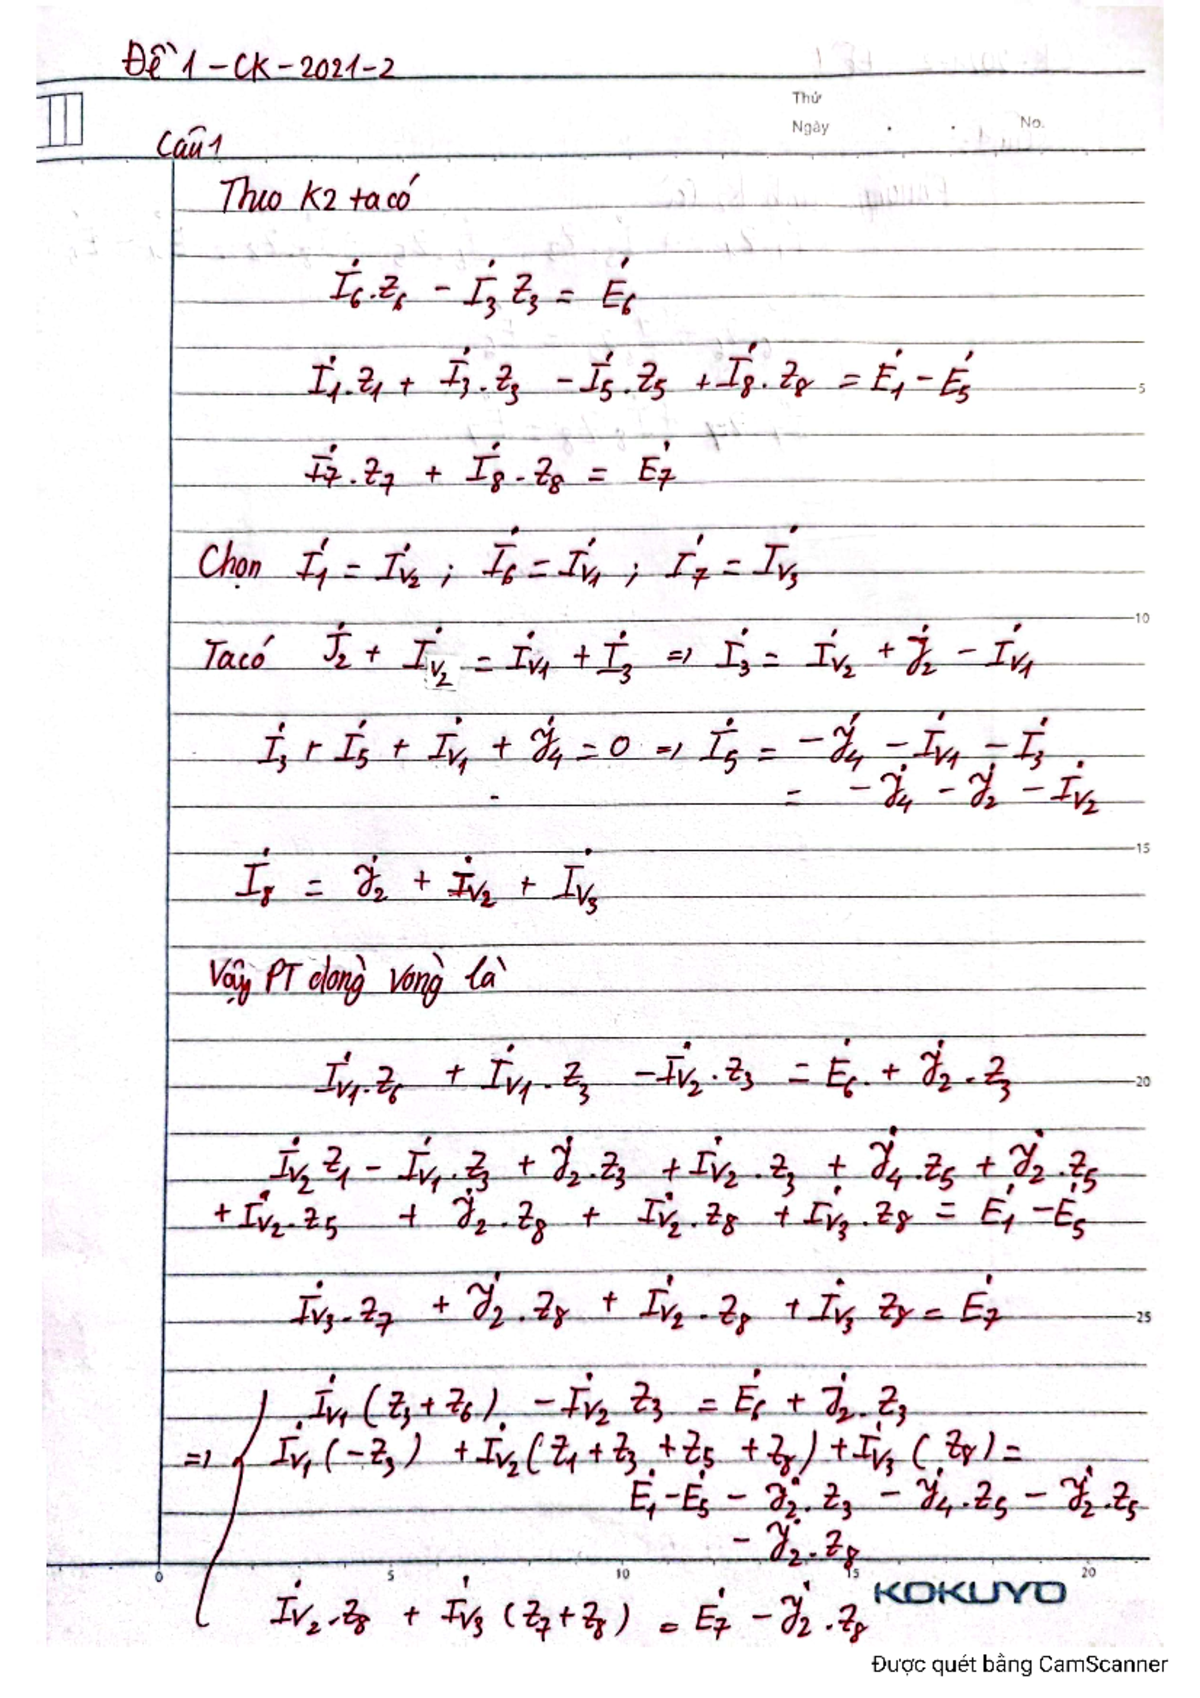 Đề 1 - CK - 2021-2
Thứ
Ngày . . No.
Câu 1
Theo K2 ta có
İ₆.Z₆ - İ₃ Z₃ = Ė₆
İ₁.Z₁ + İ₃.Z₃ - İ₅.Z₅ + İ₈.Z₈ = Ė₁ - Ė₅
5
İ₇.Z₇ + İ₈.Z₈ = Ė₇
Chọn İ₁ = İv₂ ; İ₆ = İv₁ ; İ₇ = İv₃
10
Ta có J̇₂ + İv₂ = İv₁ + İ₃ => İ₃ = İv₂ + J̇₂ - İv₁
İ₃ + İ₅ + İv₁ + J̇₄ = 0 => İ₅ = -J̇₄ - İv₁ - İ₃
= -J̇₄ - J̇₂ - İv₂
15
İ₈ = J̇₂ + İv₂ + İv₃
Vậy PT dòng vòng là
İv₁.Z₆ + İv₁.Z₃ - İv₂.Z₃ = Ė₆ + J̇₂.Z₃
20
İv₂ Z₁ - İv₁.Z₃ + J̇₂.Z₃ + İv₂.Z₃ + J̇₄.Z₅ + J̇₂.Z₅
+ İv₂.Z₅ + J̇₂.Z₈ + İv₂.Z₈ + İv₃.Z₈ = Ė₁ - Ė₅
İv₃.Z₇ + J̇₂.Z₈ + İv₂.Z₈ + İv₃ Z₈ = Ė₇
25
İv₁ (Z₃ + Z₆) - İv₂ Z₃ = Ė₆ + J̇₂.Z₃
=> İv₁ (-Z₃) + İv₂ (Z₁ + Z₃ + Z₅ + Z₈) + İv₃ (Z₈) =
Ė₁ - Ė₅ - J̇₂.Z₃ - J̇₄.Z₅ - J̇₂.Z₅
- J̇₂.Z₈
0 5 10 15 20
KOKUYO
İv₂.Z₈ + İv₃ (Z₇ + Z₈) = Ė₇ - J̇₂.Z₈
Được quét bằng CamScanner